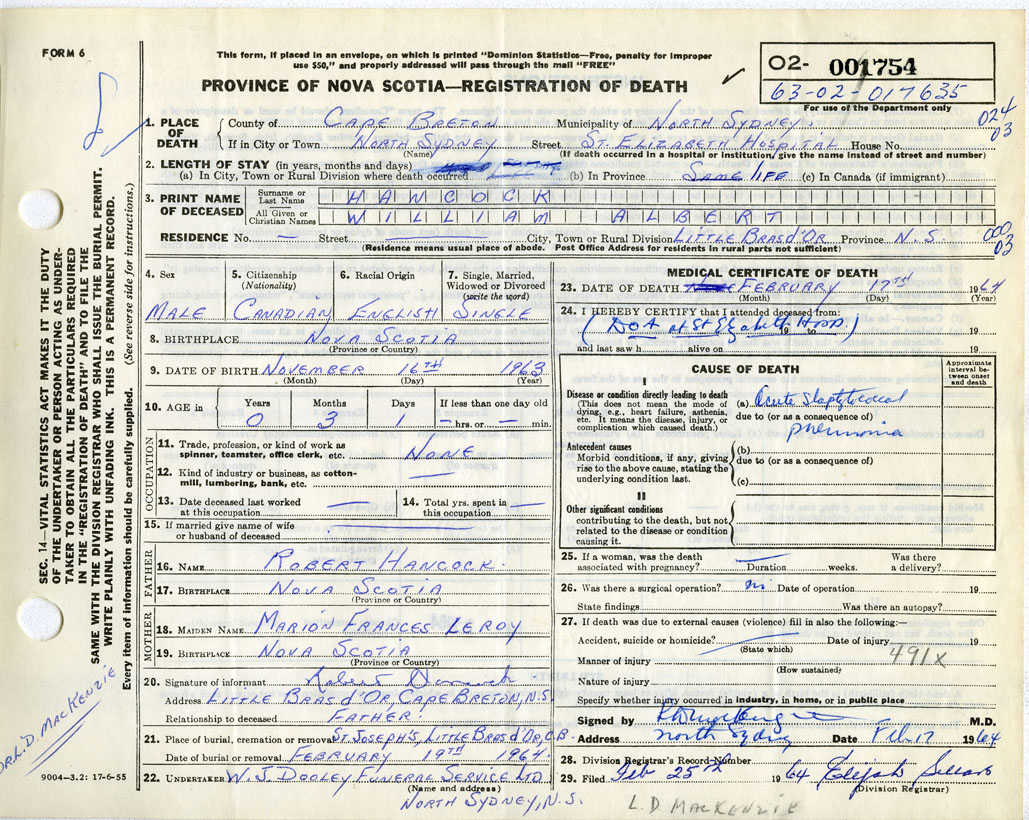 FORM 6
This form, if placed in an envelope, on which is printed "Dominion Statistics—Free, penalty for improper
use $50," and properly addressed will pass through the mail "FREE"
PROVINCE OF NOVA SCOTIA—REGISTRATION OF DEATH
O2- 001754
63-02-017635
For use of the Department only
024
03
1. PLACE OF DEATH
County of CAPE BRETON Municipality of NORTH SYDNEY.
If in City or Town NORTH SYDNEY Street ST. ELIZABETH HOSPITAL House No.
(Name) (If death occurred in a hospital or institution, give the name instead of street and number)
2. LENGTH OF STAY (in years, months and days)
(a) In City, Town or Rural Division where death occurred (b) In Province SAME LIFE (c) In Canada (if immigrant)
3. PRINT NAME OF DECEASED
Surname or Last Name HAWCOCK
All Given or Christian Names WILLIAM ALBERT
RESIDENCE No. — Street — City, Town or Rural Division LITTLE BRAS d'OR Province N.S.
(Residence means usual place of abode. Post Office Address for residents in rural parts not sufficient)
000
03
4. Sex
MALE
5. Citizenship
(Nationality)
CANADIAN
6. Racial Origin
ENGLISH
7. Single, Married,
Widowed or Divorced
(write the word)
SINGLE
8. BIRTHPLACE NOVA SCOTIA
(Province or Country)
9. DATE OF BIRTH NOVEMBER 16TH 1963
(Month) (Day) (Year)
10. AGE in
Years Months Days If less than one day old
0 3 1 — hrs. or — min.
OCCUPATION
11. Trade, profession, or kind of work as
spinner, teamster, office clerk, etc. NONE
12. Kind of industry or business, as cotton-
mill, lumbering, bank, etc. —
13. Date deceased last worked
at this occupation —
14. Total yrs. spent in
this occupation —
15. If married give name of wife
or husband of deceased —
FATHER
16. NAME ROBERT HANCOCK.
17. BIRTHPLACE NOVA SCOTIA
(Province or Country)
MOTHER
18. MAIDEN NAME MARION FRANCES LEROY
19. BIRTHPLACE NOVA SCOTIA
(Province or Country)
20. Signature of informant Robert
Address LITTLE BRAS d'OR, CAPE BRETON, N.S.
Relationship to deceased FATHER.
21. Place of burial, cremation or removal ST. JOSEPH'S, LITTLE BRAS d'OR, C.B.
Date of burial or removal FEBRUARY 19TH 1964.
22. UNDERTAKER W. J. DOOLEY FUNERAL SERVICE LTD.
(Name and address)
NORTH SYDNEY, N.S.
MEDICAL CERTIFICATE OF DEATH
23. DATE OF DEATH FEBRUARY 17TH 1964
(Month) (Day) (Year)
24. I HEREBY CERTIFY that I attended deceased from:
(DOA at St Elizabeth Hosp.)
19 to 19
and last saw h alive on 19
CAUSE OF DEATH
Approximate
interval be-
tween onset
and death
I
Disease or condition directly leading to death
(This does not mean the mode of
dying, e.g., heart failure, asthenia,
etc. It means the disease, injury, or
complication which caused death.)
(a) Acute
due to (or as a consequence of)
pneumonia
Antecedent causes
Morbid conditions, if any, giving
rise to the above cause, stating the
underlying condition last.
(b)
due to (or as a consequence of)
(c)
II
Other significant conditions
contributing to the death, but not
related to the disease or condition
causing it.
25. If a woman, was the death
associated with pregnancy? — Duration weeks. Was there
a delivery?
26. Was there a surgical operation? no Date of operation 19
State findings Was there an autopsy?
27. If death was due to external causes (violence) fill in also the following:—
Accident, suicide or homicide? — Date of injury 19
(State which)
491x
Manner of injury
(How sustained)
Nature of injury
Specify whether injury occurred in industry, in home, or in public place
Signed by M.D.
Address North Sydney Date Feb. 17 1964
28. Division Registrar's Record Number
29. Filed Feb 25th 1964 Elijah
(Division Registrar)
L. D. MACKENZIE
SEC. 14—VITAL STATISTICS ACT MAKES IT THE DUTY
OF THE UNDERTAKER OR PERSON ACTING AS UNDER-
TAKER TO OBTAIN ALL THE PARTICULARS REQUIRED
IN THE "REGISTRATION OF DEATH" AND TO FILE THE
SAME WITH THE DIVISION REGISTRAR WHO SHALL ISSUE THE BURIAL PERMIT.
WRITE PLAINLY WITH UNFADING INK. THIS IS A PERMANENT RECORD.
Every item of information should be carefully supplied. (See reverse side for instructions.)
DR L. D. MACKENZIE
9004-3.2: 17-6-55